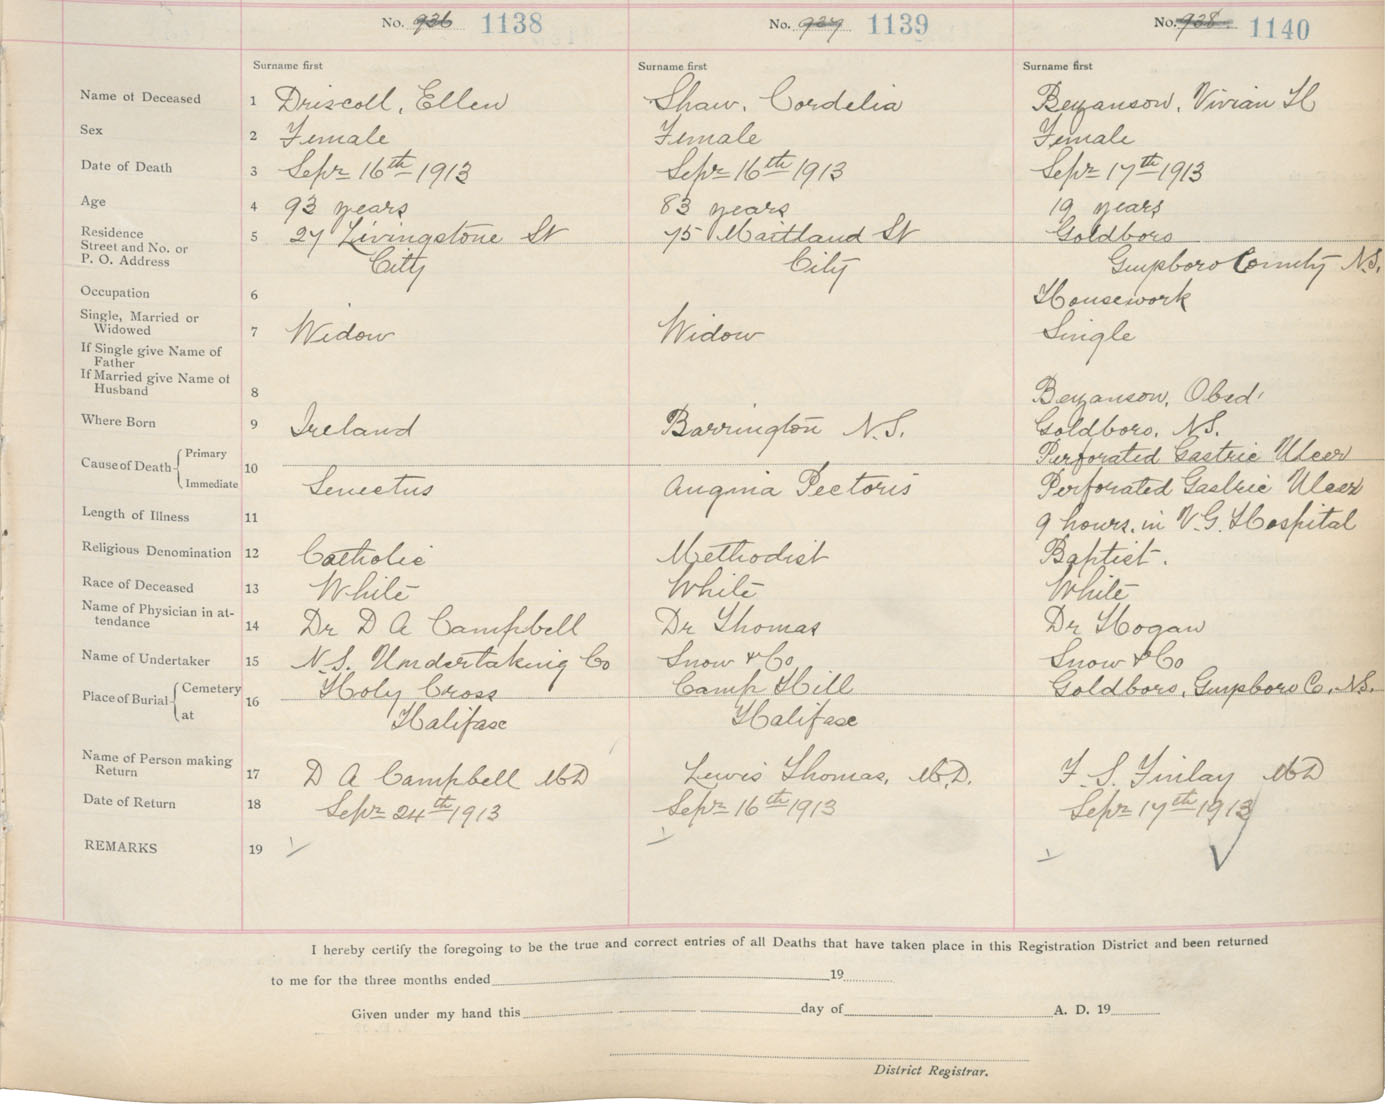 No. 936 1138 No. 937 1139 No. 938 1140
Surname first Surname first Surname first
Name of Deceased 1 Driscoll, Ellen Shaw, Cordelia Bezanson, Vivian H
Sex 2 Female Female Female
Date of Death 3 Sepr 16th 1913 Sepr 16th 1913 Sepr 17th 1913
Age 4 93 years 83 years 19 years
Residence 5 27 Livingstone St 75 Maitland St Goldboro
Street and No. or
P. O. Address City City Guysboro County N.S.
Occupation 6 Housework
Single, Married or
Widowed 7 Widow Widow Single
If Single give Name of
Father
If Married give Name of
Husband 8 Bezanson, Obed
Where Born 9 Ireland Barrington N.S. Goldboro, N.S.
Cause of Death Primary 10 Perforated Gastric Ulcer
Immediate Senectus Angina Pectoris Perforated Gastric Ulcer
Length of Illness 11 9 hours. in V.G. Hospital
Religious Denomination 12 Catholic Methodist Baptist.
Race of Deceased 13 White White White
Name of Physician in at-
tendance 14 Dr D A Campbell Dr Thomas Dr Hogan
Name of Undertaker 15 N.S. Undertaking Co Snow & Co Snow & Co
Place of Burial Cemetery 16 Holy Cross Camp Hill Goldboro, Guysboro Co, N.S.
at Halifax Halifax
Name of Person making
Return 17 D A Campbell MD Lewis Thomas, M.D. F. S. Finlay MD
Date of Return 18 Sepr 24th 1913 Sepr 16th 1913 Sepr 17th 1913
REMARKS 19
I hereby certify the foregoing to be the true and correct entries of all Deaths that have taken place in this Registration District and been returned
to me for the three months ended 19
Given under my hand this day of A. D. 19
District Registrar.